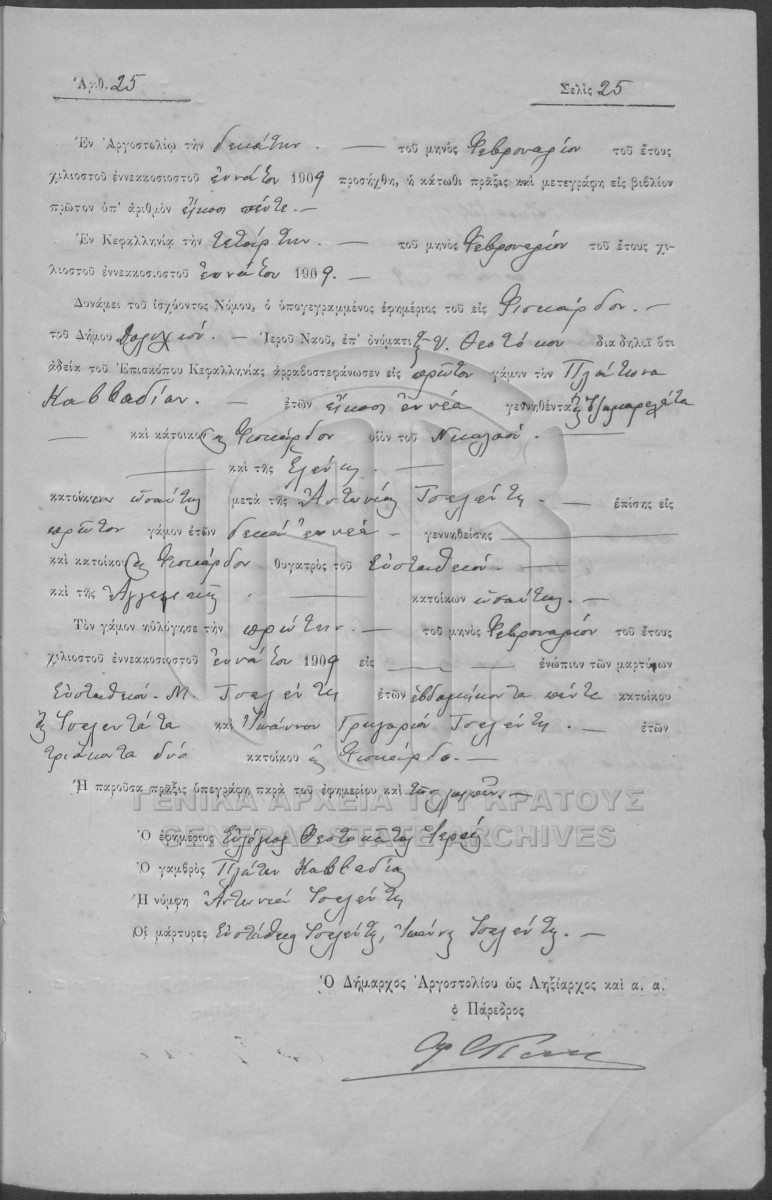 Ἀριθ. 25 Σελὶς 25
Ἐν Ἀργοστολίῳ τὴν δεκάτην. — τοῦ μηνὸς Φεβρουαρίου τοῦ ἔτους
χιλιοστοῦ ἐννεακοσιοστοῦ ἐννάτου 1909 προσήχθη, ἡ κάτωθι πρᾶξις καὶ μετεγράφη εἰς βιβλίον
πρῶτον ὑπ' ἀριθμὸν εἴκοσι πέντε. —
Ἐν Κεφαλληνίᾳ τὴν τετάρτην. — τοῦ μηνὸς Φεβρουαρίου τοῦ ἔτους χι-
λιοστοῦ ἐννεακοσιοστοῦ ἐννάτου 1909. —
Δυνάμει τοῦ ἰσχύοντος Νόμου, ὁ ὑπογεγραμμένος ἐφημέριος τοῦ εἰς Φισκάρδον. —
τοῦ Δήμου Δολιχίου. — Ἱεροῦ Ναοῦ, ἐπ' ὀνόματι Θεοτόκου διαδηλοῖ ὅτι
ἀδείᾳ τοῦ Ἐπισκόπου Κεφαλληνίας ἀρραβοστεφάνωσεν εἰς πρῶτον γάμον τὸν Πλάτωνα
Καββαδίαν. — ἐτῶν εἴκοσι ἐννέα γεννηθέντα
— καὶ κάτοικον Φισκάρδου υἱὸν τοῦ Νικολάου. —
— καὶ τῆς Ἑλένης. —
κατοίκων ὡσαύτως μετὰ τῆς Ἀντωνίας Τσελέντη. — ἐπίσης εἰς
πρῶτον γάμον ἐτῶν δεκα ἐννέα — γεννηθείσης —
καὶ κατοίκου Φισκάρδου θυγατρὸς τοῦ Εὐσταθίου. —
καὶ τῆς Ἀγγελικῆς. — κατοίκων ὡσαύτως. —
Τὸν γάμον ηὐλόγησε τὴν πρώτην. — τοῦ μηνὸς Φεβρουαρίου τοῦ ἔτους
χιλιοστοῦ ἐννεακοσιοστοῦ ἐννάτου 1909 εἰς — ἐνώπιον τῶν μαρτύρων
Εὐσταθίου Μ. Τσελέντη ἐτῶν ἑβδομήκοντα πέντε κατοίκου
Τσελεντάτα καὶ Ἰωάννου Γρηγορίου Τσελέντη. — ἐτῶν
τριάκοντα δύο κατοίκου Φισκάρδο. —
Ἡ παροῦσα πρᾶξις ὑπεγράφη παρὰ τοῦ ἐφημερίου καὶ τῶν λοιπῶν. —
ΓΕΝΙΚΑ ΑΡΧΕΙΑ ΤΟΥ ΚΡΑΤΟΥΣ
GENERAL STATE ARCHIVES
Ὁ ἐφημέριος Εὐλόγιος Θεοτοκάτος Ἱερεύς
Ὁ γαμβρὸς Πλάτων Καββαδίας
Ἡ νύμφη Ἀντωνία Τσελέντη
Οἱ μάρτυρες Εὐστάθιος Τσελέντης, Ἰωάννης Τσελέντης. —
Ὁ Δήμαρχος Ἀργοστολίου ὡς Ληξίαρχος καὶ α. α.
ὁ Πάρεδρος